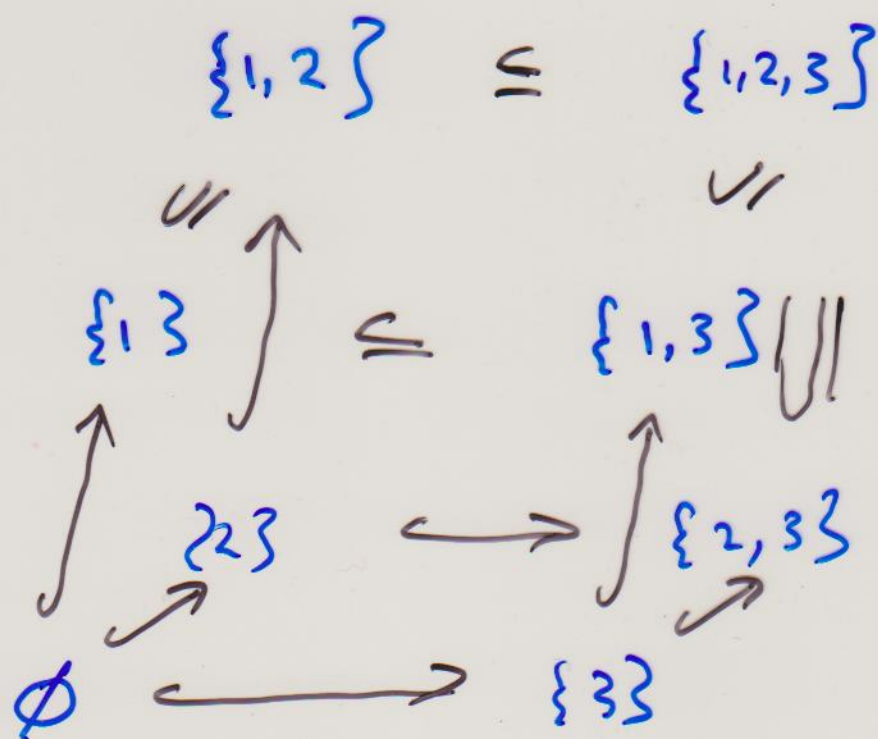 {1,2} ⊆ {1,2,3}
{1} ⊆ {1,3}
{2} {2,3}
∅ {3}